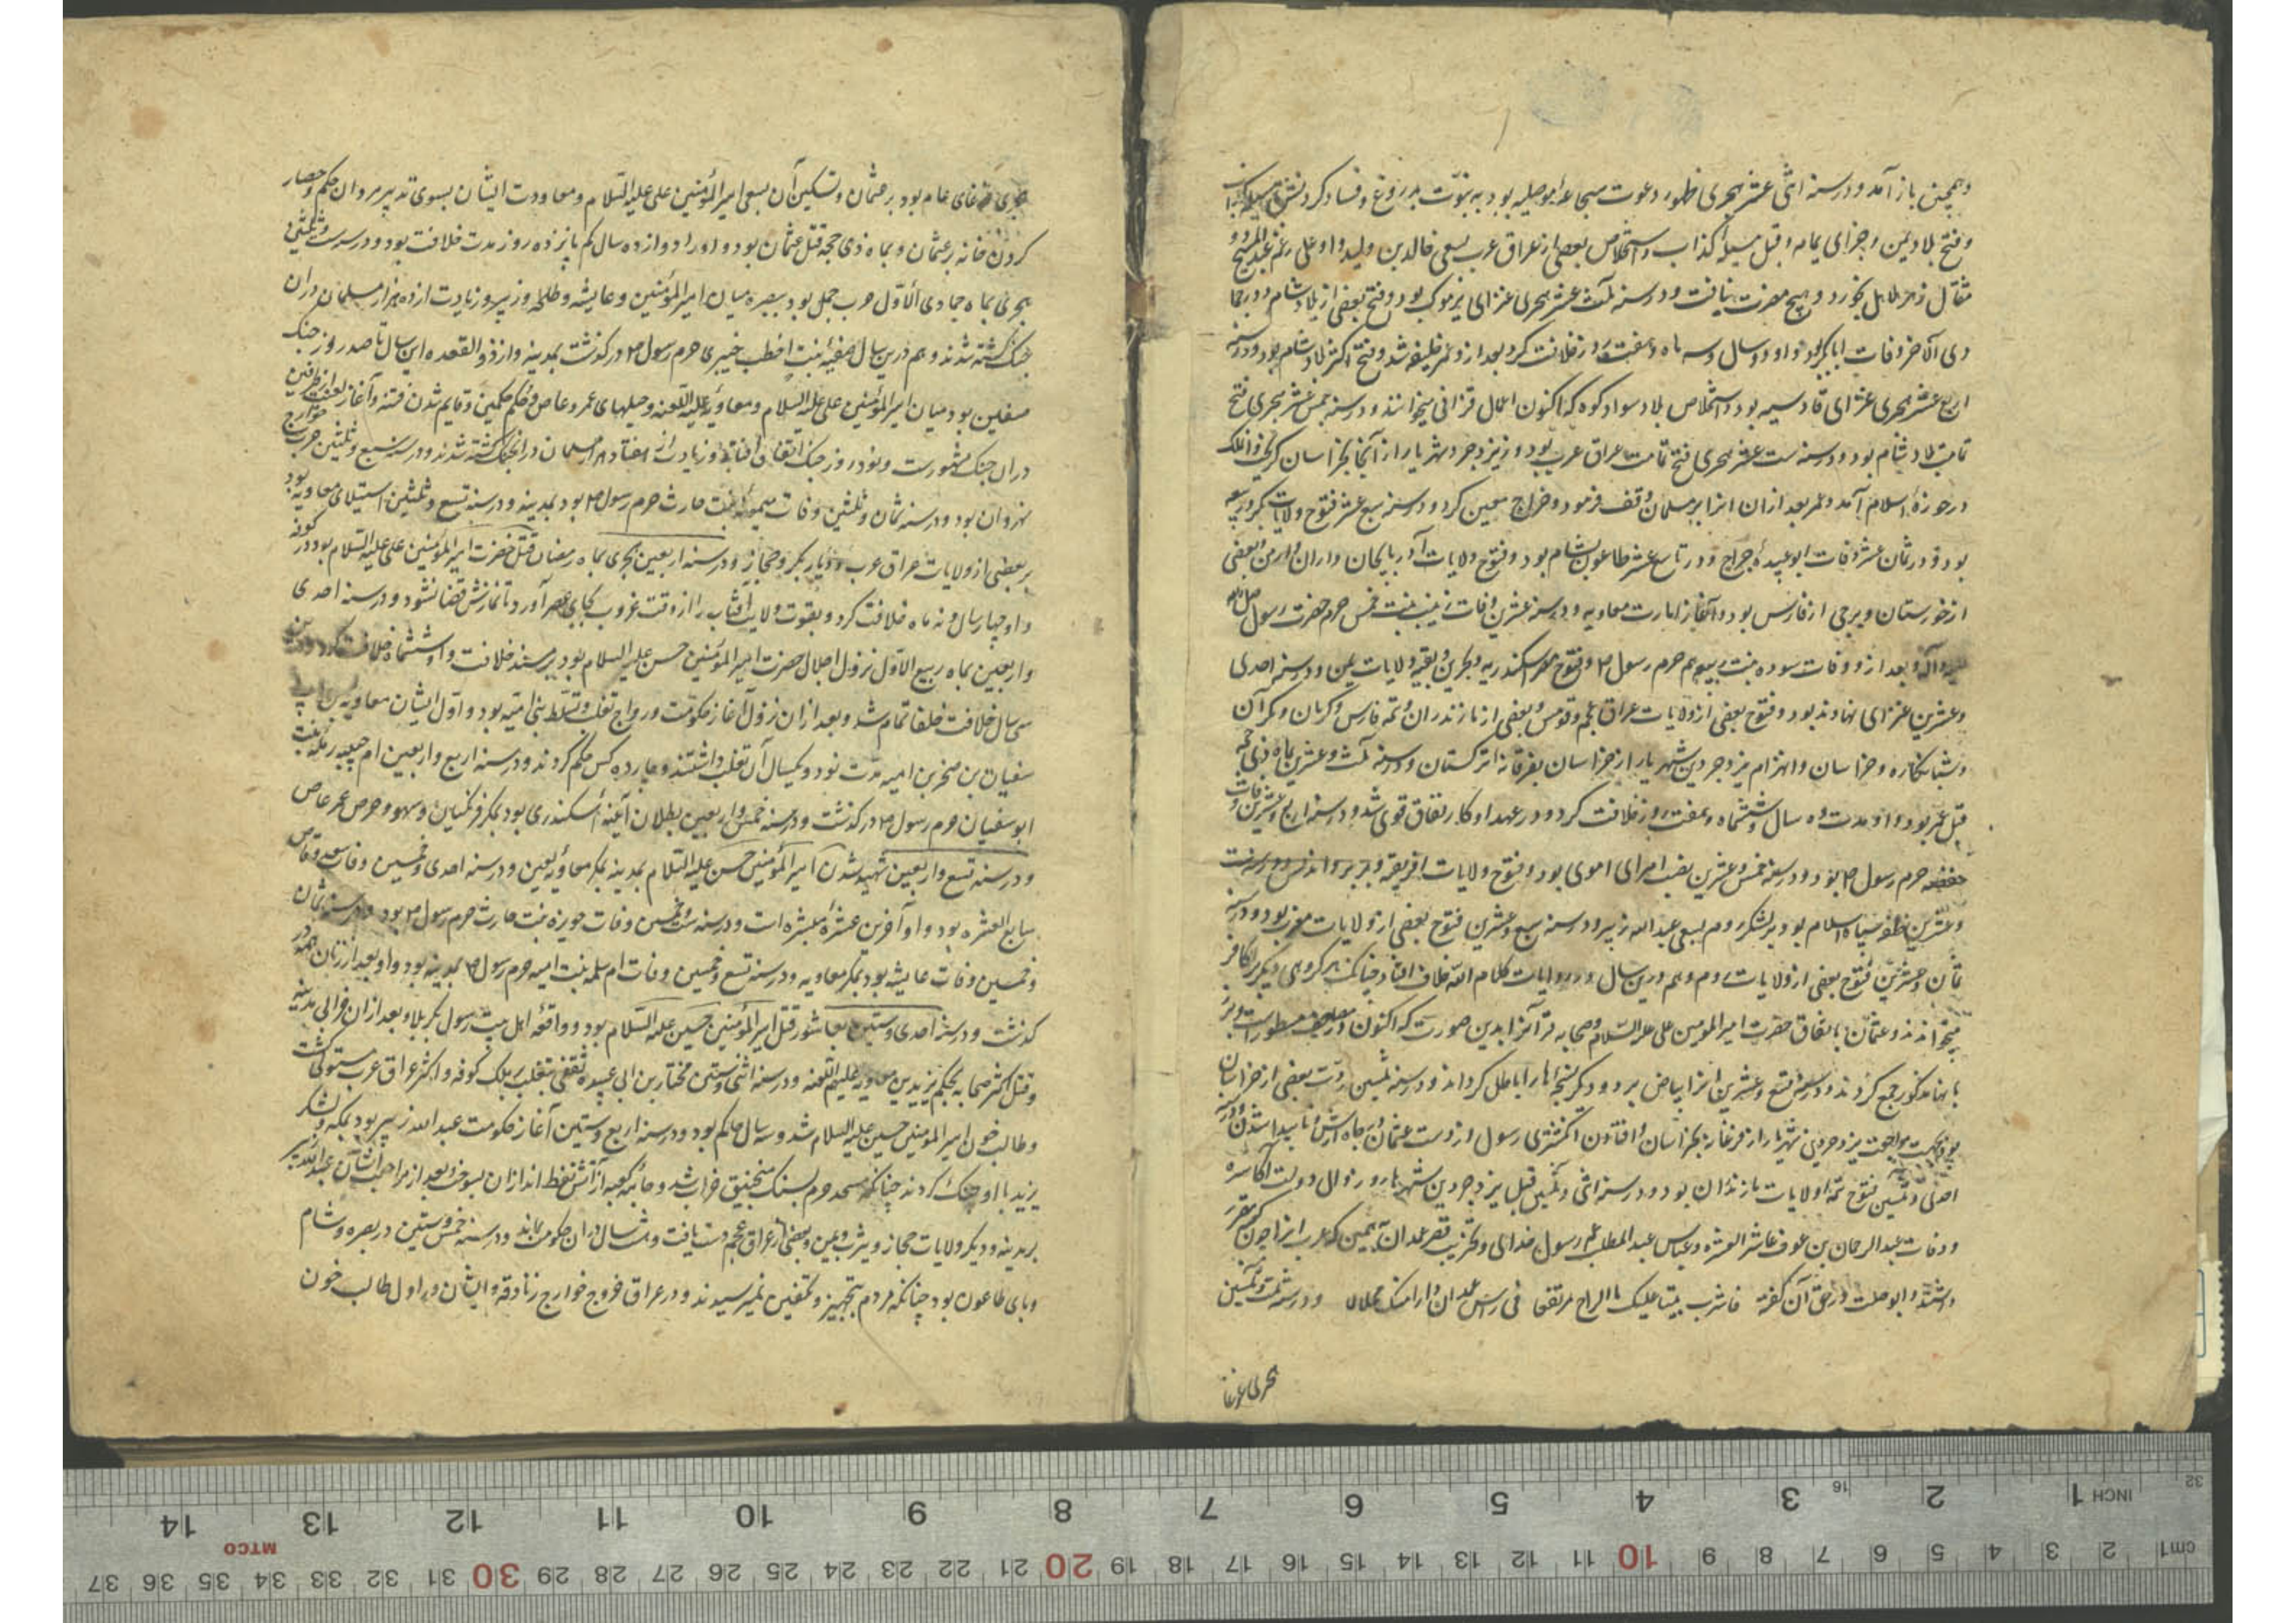 وهمچنین باز آمد و در سنه اثنی عشر هجری ظهور دعوت سجاعه موصلیه بود به نبوت بدروغ و فساد کردنش
و فتح بلاد یمن و جزای یمامه و قتل مسیلمه کذاب و استخلاص بعضی از عراق عرب بسعی خالد بن ولید و او علی رغم عبدالمسیح دو
مثقال زهر هلاهل بخورد و هیچ مضرت نیافت و در سنه ثلث عشر هجری غزای یرموک بود و فتح بعضی از بلاد شام و در جما
دی الآخر وفات ابابکر بود و او دو سال و سه ماه و هفت روز خلافت کرد بعد ازو عمر خلیفه شد و فتح اکثر بلاد شام بود و در سنه
اربع عشر هجری غزای قادسیه بود و استخلاص بلاد سواد کوه که اکنون اعمال قزافی میخوانند و در سنه خمس عشر هجری فتح
تمامت بلاد شام بود و در سنه ست عشر هجری فتح تمامت عراق عرب بود و یزدجرد شهریار از آنجا بخراسان گریخت
در حوزهٔ اسلام آمد و عمر بعد ازان انرا بر مسلمانان وقف فرمود و خراج معین کرد و در سنه سبع عشر فتوح ولایات بکر و ربیعه
بود و در ثمان عشر وفات ابو عبیده جراح و در تاسع عشر طاعون بشام بود و فتوح ولایات آذربایجان و اران و ارمن و بعضی
از خورستان و برخی از فارس بود و آغاز امارت معاویه و در سنه عشرین وفات زینب بنت جحش حرم حضرت رسول صلی الله
علیه و آله و بعد ازو وفات سوده بنت ربیعه هم حرم رسول ص و فتوح مصر و اسکندریه و بحرین و بقیه ولایات یمن و در سنه احدی
و عشرین غزای نهاوند بود و فتوح بعضی از ولایات عراق عجم و قومس و بعضی از مازندران و تمه فارس و کرمان و مکران
و شبانکاره و خراسان و انهزام یزدجرد بن شهریار از خراسان بفرغانه ترکستان و در سنه ثلث و عشرین بماه ذی حجه
قتل عمر بود و او مدت ده سال و ششماه و هفت روز خلافت کرد و در عهد او کار نفاق قوی شد و در سنه اربع و عشرین وفات
حفصه حرم رسول ص بود و در سنه خمس و عشرین نصب امرای اموی بود و فتوح ولایات افریقیه و بربر و اندلس و در سنه ست
و عشرین ظفر سپاه اسلام بود بر لشکر روم بسعی عبدالله زبیر و در سنه سبع و عشرین فتوح بعضی از ولایات مغرب بود و در سنه
ثمان و عشرین فتوح بعضی از ولایات روم و هم درین سال در روایات کلام الله خلاف افتاد چنانکه هر گروهی دیگر را کافر
میخواندند و عثمان باتفاق حضرت امیر المومنین علی علیه السلام و صحابه قرآنرا بدین صورت که اکنون در مصاحف مسطورست
جمع کردند و در سنه تسع و عشرین انرا ببیاض برد و دیگر نسخه‌ها را باطل کرد و در سنه ثلثین ردت بعضی از خراسان
بود بجهت مراجعت یزدجرد بن شهریار از فرغانه بخراسان و افتادن انگشتری رسول از دست عثمان در چاه اریس و ناپیدا شدن و در سنه
احدی و ثلثین فتوح تتمه ولایات مازندران بود و در سنه اثنی و ثلثین قتل یزدجرد بن شهریار و زوال دولت اکاسره
و وفات عبد الرحمان بن عوف عاشر العشره و عباس عبد المطلب عم رسول خدای و تخریب قصر غمدان یمن که عرب انرا
داشتند و ابو صلت در حق آن گفته فاشرب هنیئا علیک التاج مرتفقا فی رأس غمدان دارا منک محلالا و در سنه ثلث و ثلثین
هجری غوغا
هجری غوغای عام بود بر عثمان و تسکین آن بسعی امیر المؤمنین علی علیه السلام و معاودت ایشان بسوی تدبیر مروان حکم و حصار
کردن خانه بر عثمان و بماه ذی حجه قتل عثمان بود و او را دوازده سال کم پانزده روز مدت خلافت بود و در سنه ست و ثلثین
هجری بماه جمادی الاول حرب جمل بود ببصره میان امیر المؤمنین و عایشه و طلحه و زبیر و زیادت از ده هزار مسلمان دران
جنگ کشته شدند و هم درین سال صفیه بنت اخطب خیبری حرم رسول ص درگذشت بمدینه و از ذو القعده این سال تا صد روز جنگ
صفین بود میان امیر المؤمنین علی علیه السلام و معاویه علیه اللعنه و حیلهای عمرو عاص و حکم حکمین و قایم شدن فتنه و آغاز لعنت از طرفین
دران جنگ مشهورست و نود روز جنگ اتفاق افتاد و زیادت از هفتاد هزار مسلمان دران جنگ کشته شدند و در سنه سبع و ثلثین حرب خوارج
نهروان بود و در سنه ثمان و ثلثین وفات میمونه بنت حارث حرم رسول ص بود بمدینه و در سنه تسع و ثلثین استیلای معاویه بود
بر بعضی از ولایات عراق عرب و دیار بکر و حجاز و در سنه اربعین هجری بماه رمضان قتل حضرت امیر المؤمنین علی علیه السلام بود در کوفه
و او چهار سال و نه ماه خلافت کرد و بقوت ولایت آفتاب را از وقت غروب بجای عصر آورد تا نمازش قضا نشود و در سنه احدی
و اربعین بماه ربیع الاول نزول اجلال حضرت امیر المؤمنین حسن علیه السلام بود بر مسند خلافت و او ششماه خلافت کرد
سی سال خلافت خلفا تمام شد و بعد ازان نزول آغاز حکومت و رواج تغلب و تسلط بنی امیه بود و اول ایشان معاویه بن ابی
سفیان بن صخر بن امیه مدت نود و یکسال آن تغلب داشتند و چهارده کس حکم کردند و در سنه اربع و اربعین ام حبیبه رمله بنت
ابو سفیان حرم رسول ص درگذشت و در سنه خمس و اربعین بطلان آینه اسکندری بود بمکر فرنگیان و سهو و حرص عمر عاص
و در سنه تسع و اربعین شهید شدن امیر المؤمنین حسن علیه السلام بمدینه بمکر معاویه لعین و در سنه احدی و خمسین وفات سعد وقاص
سابع العشره بود و او آخرین عشره مبشره است و در سنه ست و خمسین وفات جویره بنت حارث حرم رسول ص بود و در سنه ثمان
و خمسین وفات عایشه بود بمکر معاویه و در سنه تسع و خمسین وفات ام سلمه بنت امیه حرم رسول ص بمدینه بود و او بعد از زنان همه در
گذشت و در سنه احدی و ستین بعاشور قتل امیر المؤمنین حسین علیه السلام بود و واقعه اهل بیت رسول بکربلا و بعد ازان خرابی مدینه
و قتل اکثر صحابه بحکم یزید بن معاویه علیهم اللعنه و در سنه اثنی و ستین مختار بن ابی عبیده ثقفی بتغلب بر ملک کوفه و اکثر عراق عرب مستولی گشت
و طالب خون امیر المومنین حسین علیه السلام شد و سه سال حاکم بود و در سنه اربع و ستین آغاز حکومت عبد الله زبیر بود بمکه و لشکر
یزید با او جنگ کردند چنانکه مسجد حرم بسنگ منجنیق خراب شد و جامه کعبه از آتش نفط اندازان بسوخت و بعد از مراجعت ایشان عبد الله زبیر
بر مدینه و دیگر ولایات حجاز و یثرب و یمن و بعضی از عراق عجم دست یافت و هشت سال دران حکومت بماند و در سنه خمس و ستین در بصره و شام
وبای طاعون بود چنانکه مردم بتجهیز و تکفین نمیرسیدند و در عراق خروج خوارج زنادقه و ایشان در اول طالب خون
1 INCH 2 3 4 5 6 7 8 9 10 11 12 13 14
16 32
MTCO
cm1 2 3 4 5 6 7 8 9 10 11 12 13 14 15 16 17 18 19 20 21 22 23 24 25 26 27 28 29 30 31 32 33 34 35 36 37